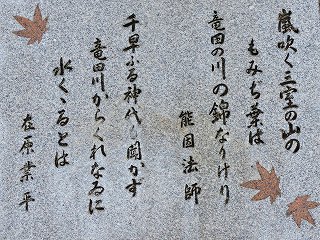 嵐吹く三室の山の
もみぢ葉は
竜田の川の錦なりけり
能因法師
千早ふる神代も聞かす
竜田川からくれなゐに
水くゝるとは
在原業平